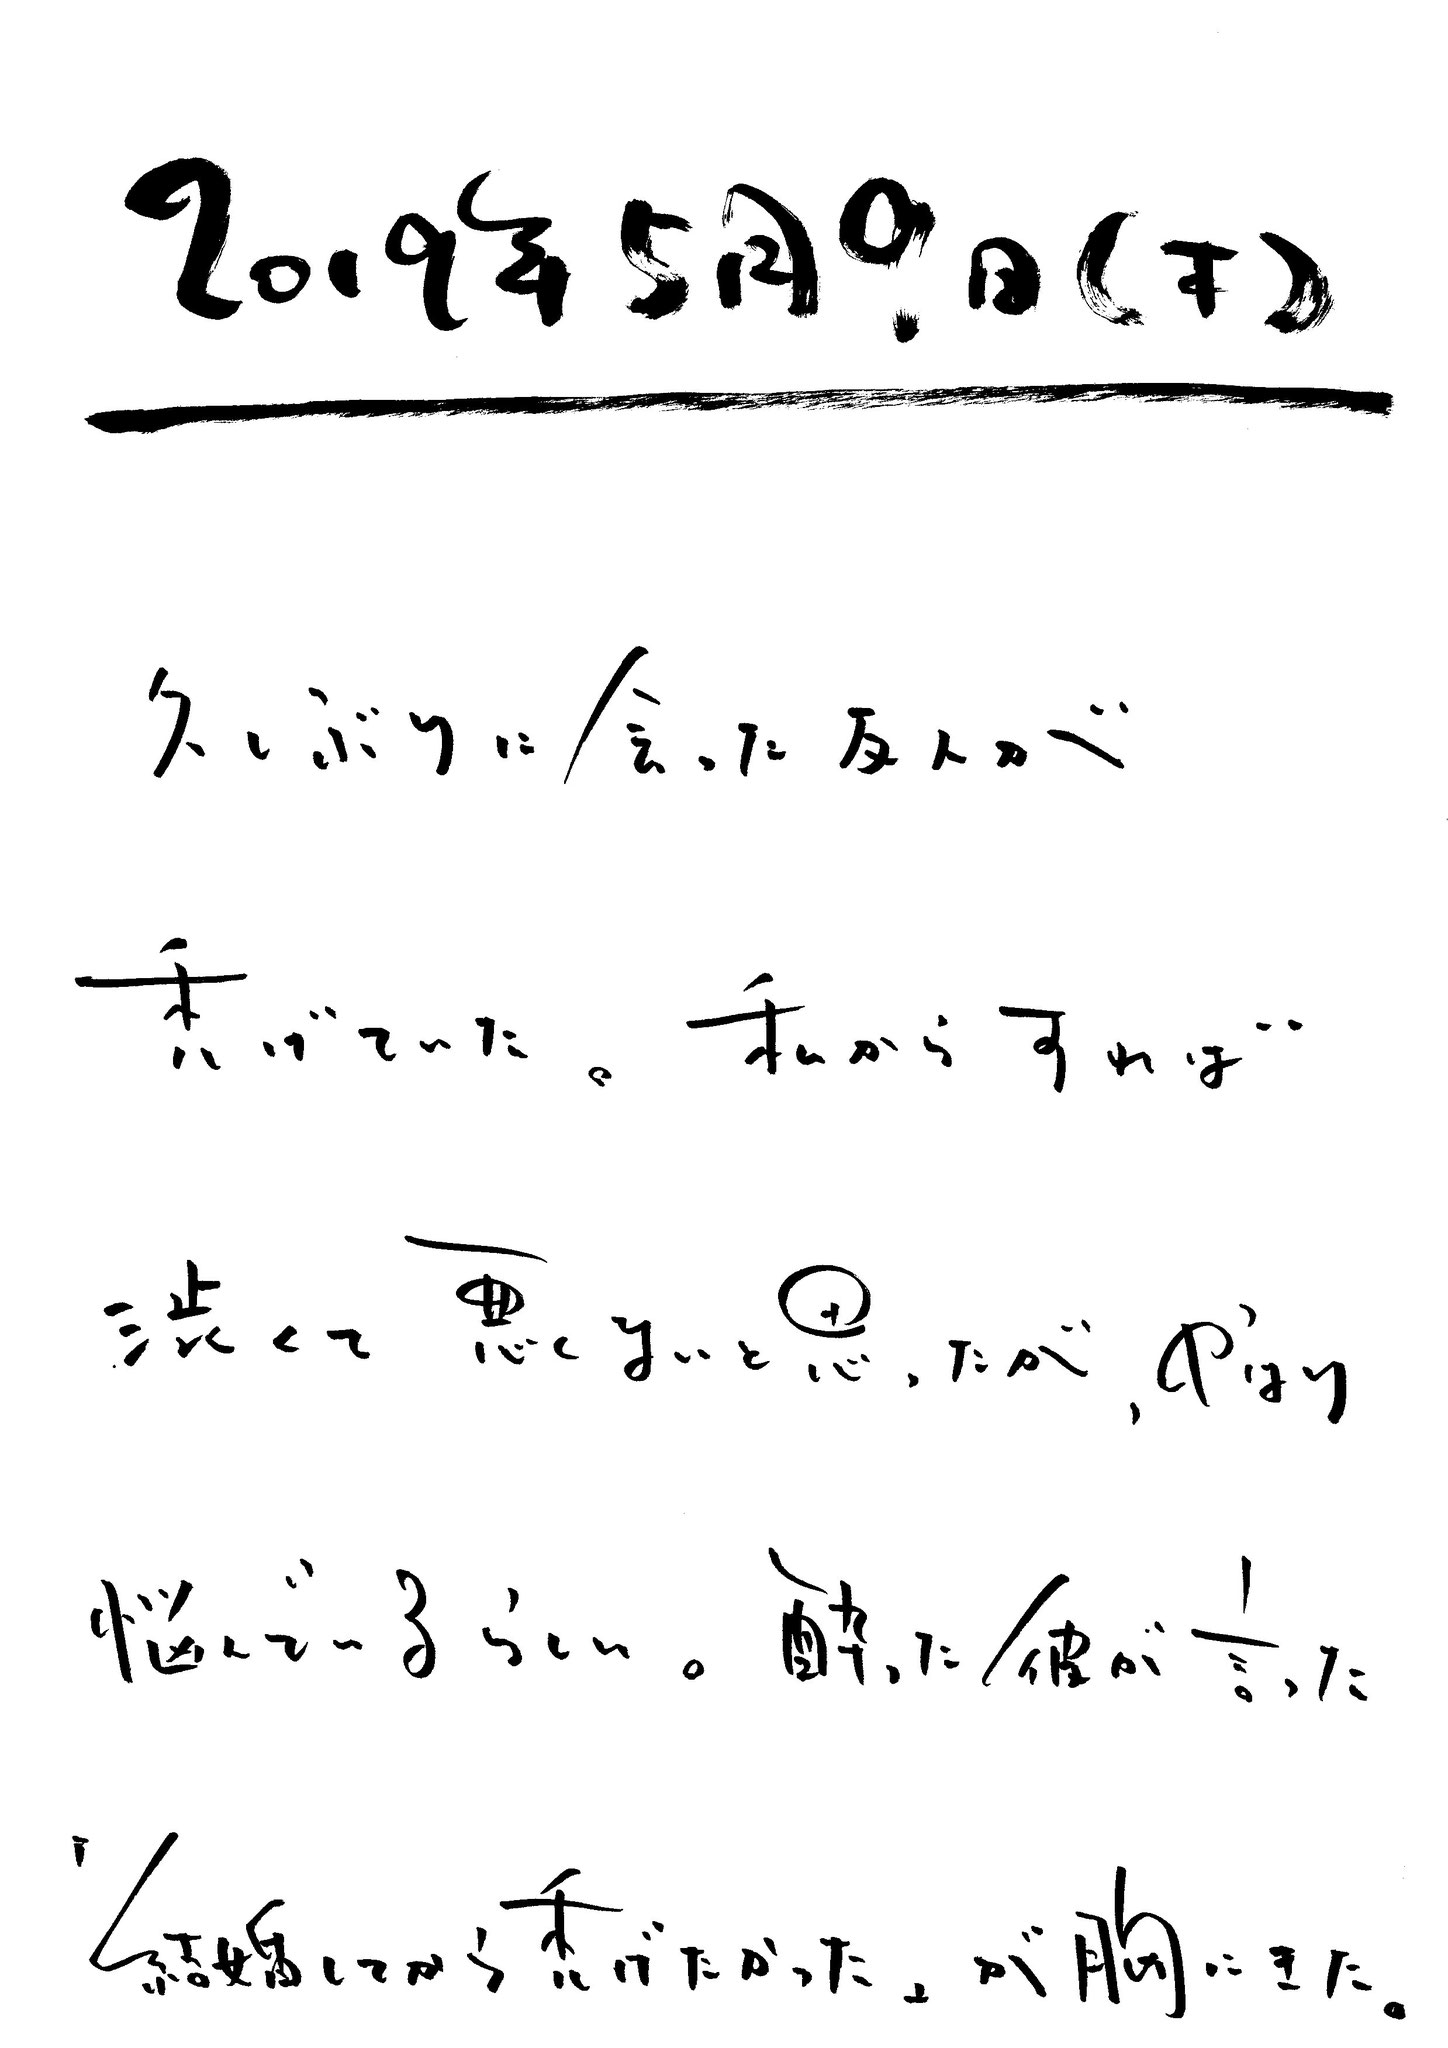 2019年5月9日(木)
久しぶりに会った友人が
禿げていた。私からすれば
渋くて悪くないと思ったが、やはり
悩んでいるらしい。酔った彼が言った
「結婚してから禿げたかった」が胸にきた。